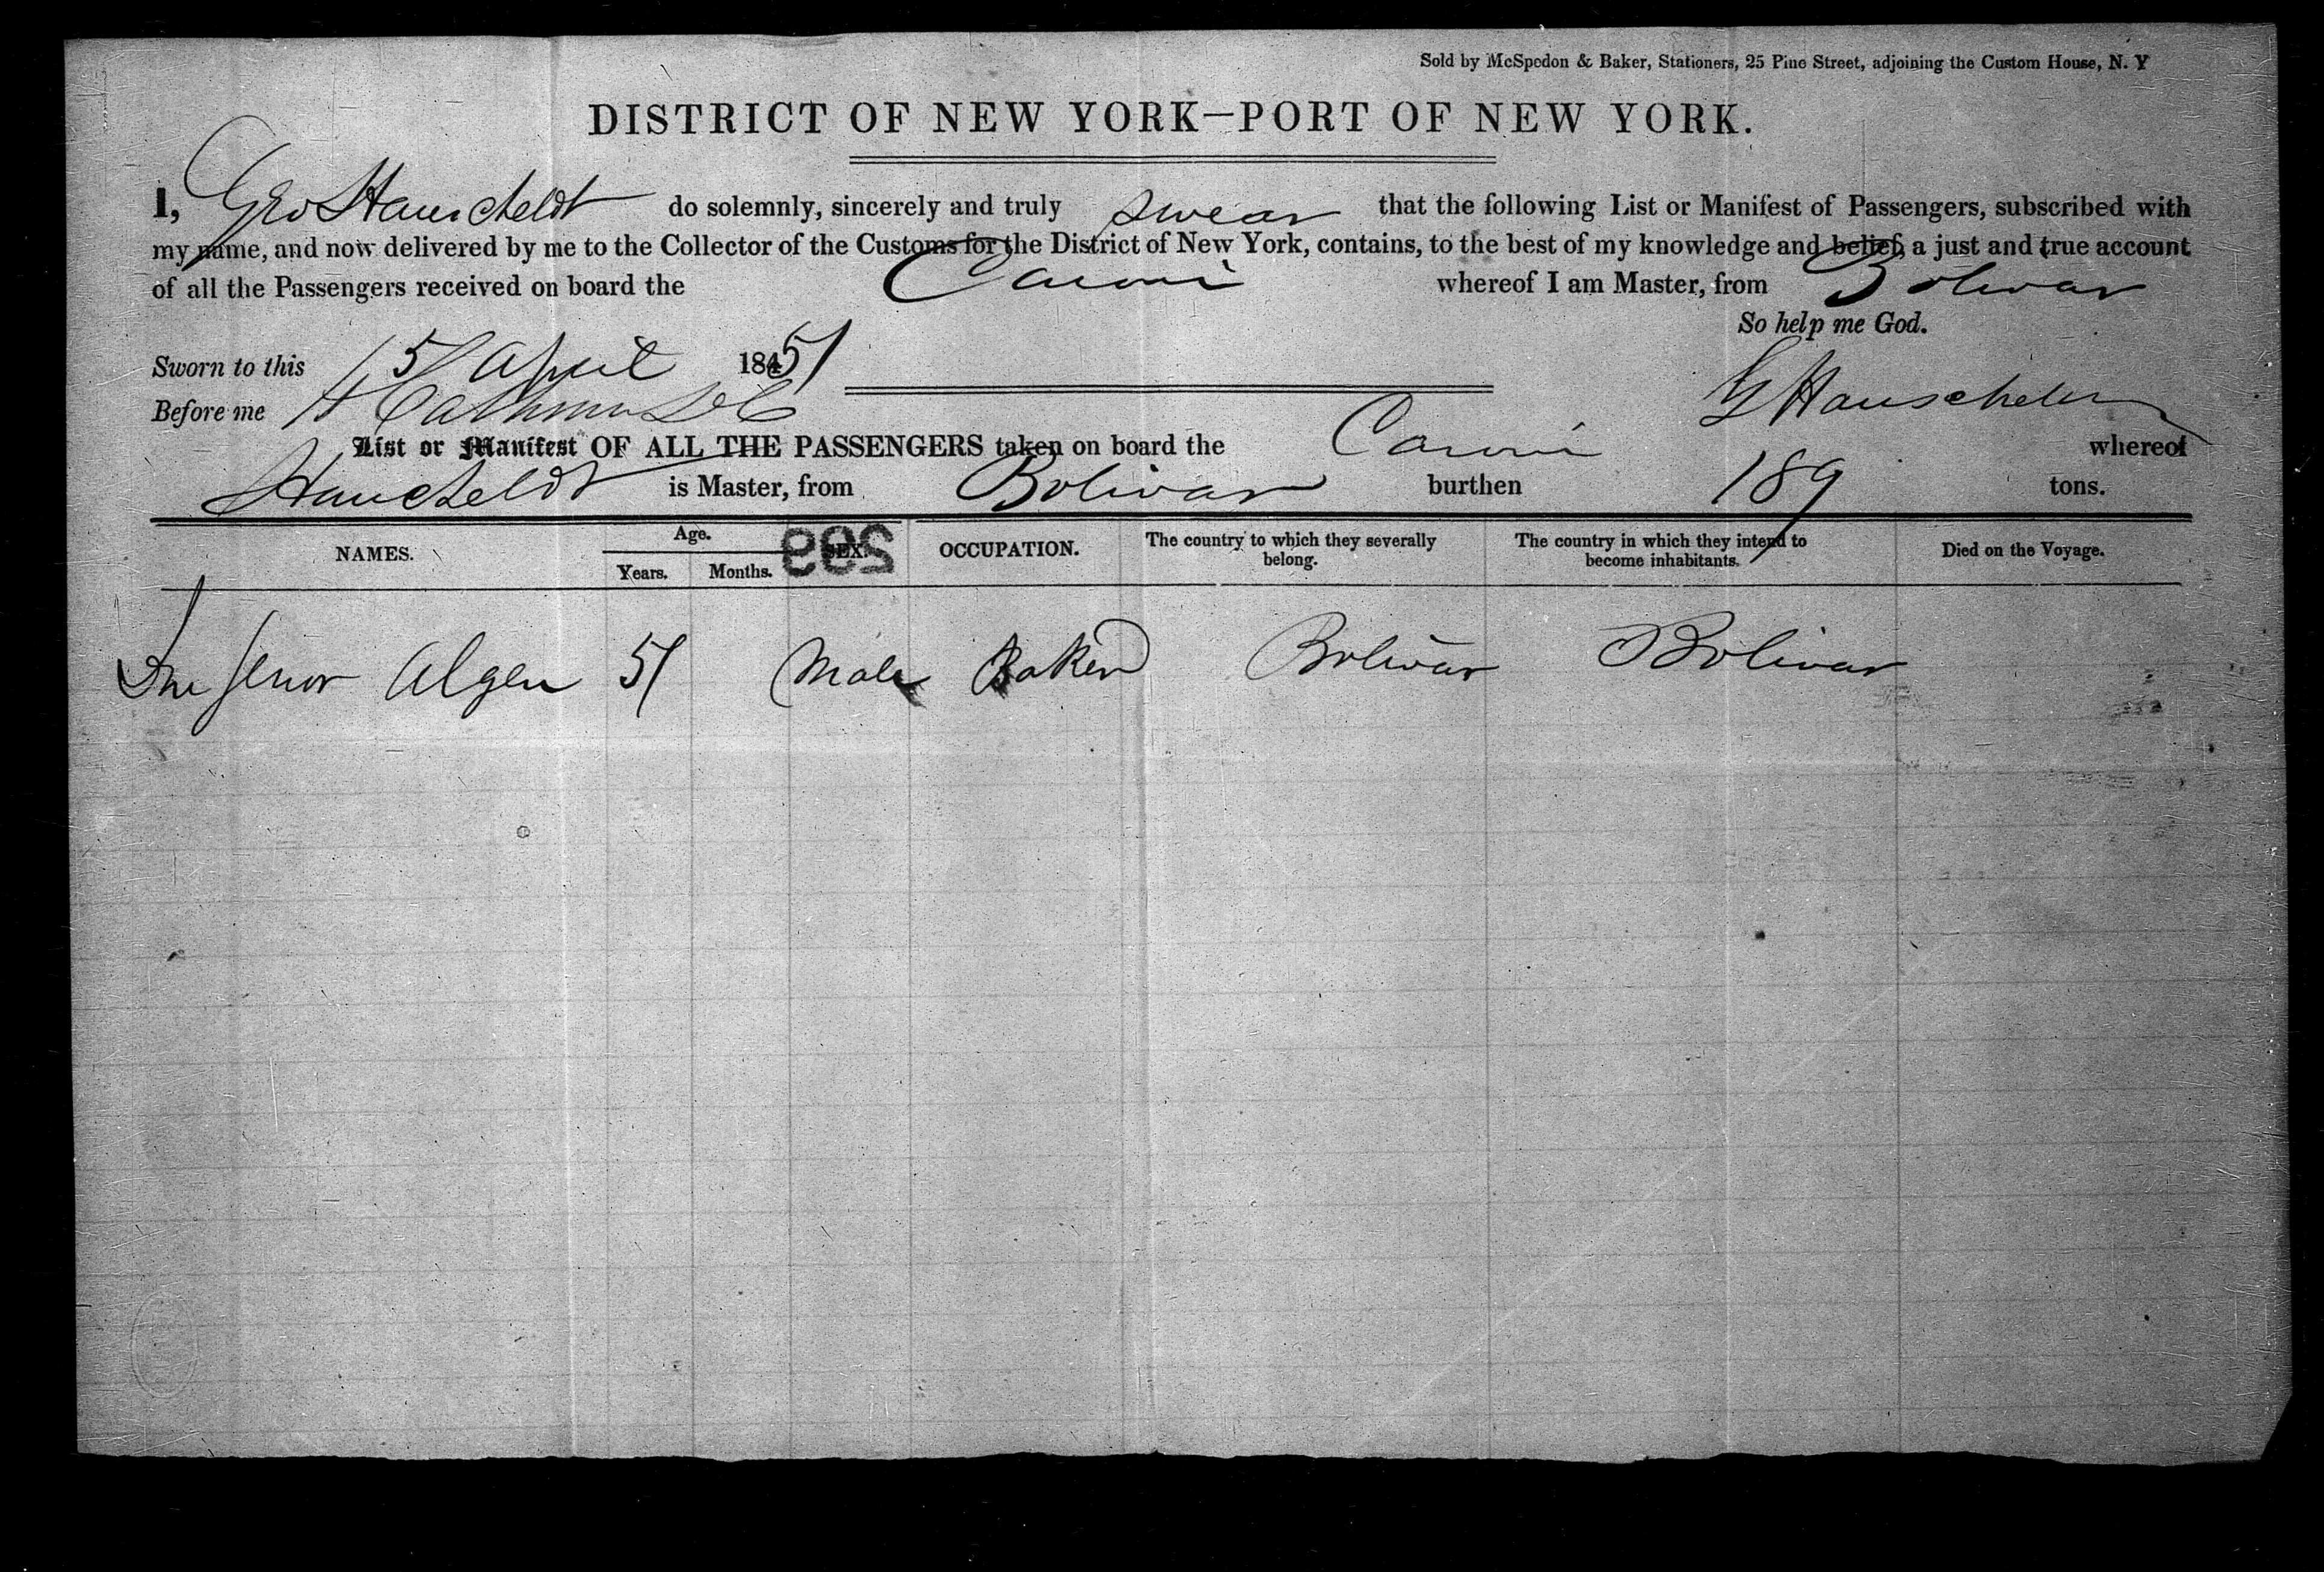 Sold by McSpedon & Baker, Stationers, 25 Pine Street, adjoining the Custom House, N. Y
DISTRICT OF NEW YORK—PORT OF NEW YORK.
I, Geo Hauscheldt do solemnly, sincerely and truly swear that the following List or Manifest of Passengers, subscribed with
my name, and now delivered by me to the Collector of the Customs for the District of New York, contains, to the best of my knowledge and belief, a just and true account
of all the Passengers received on board the Caroni whereof I am Master, from Bolivar
So help me God.
Sworn to this 15 April 1851
Before me
G Hauschel
List or Manifest OF ALL THE PASSENGERS taken on board the Caroni whereof
Haucheldt is Master, from Bolivar burthen 189 tons.
NAMES. Age. Years. Months. SEX. OCCUPATION. The country to which they severally belong. The country in which they intend to become inhabitants. Died on the Voyage.
299
Senor Algen 51 Male Baker Bolivar Bolivar